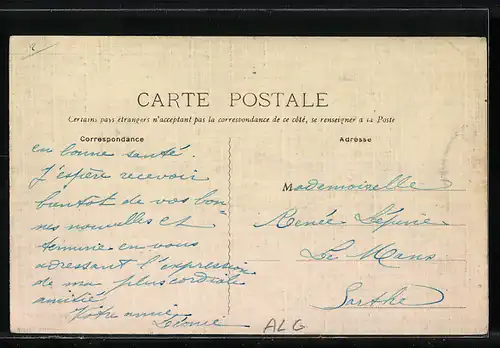 CARTE POSTALE
Certains pays étrangers n'acceptant pas la correspondance de ce côté, se renseigner à la Poste
Correspondance
en bonne santé.
J'espère recevoir
bientot de vos bon-
nes nouvelles et
termine en vous
adressant l'expression
de ma plus cordiale
amitié
Votre amie
Léonie
Adresse
Mademoiselle
Renée
Le Mans
Sarthe
ALG